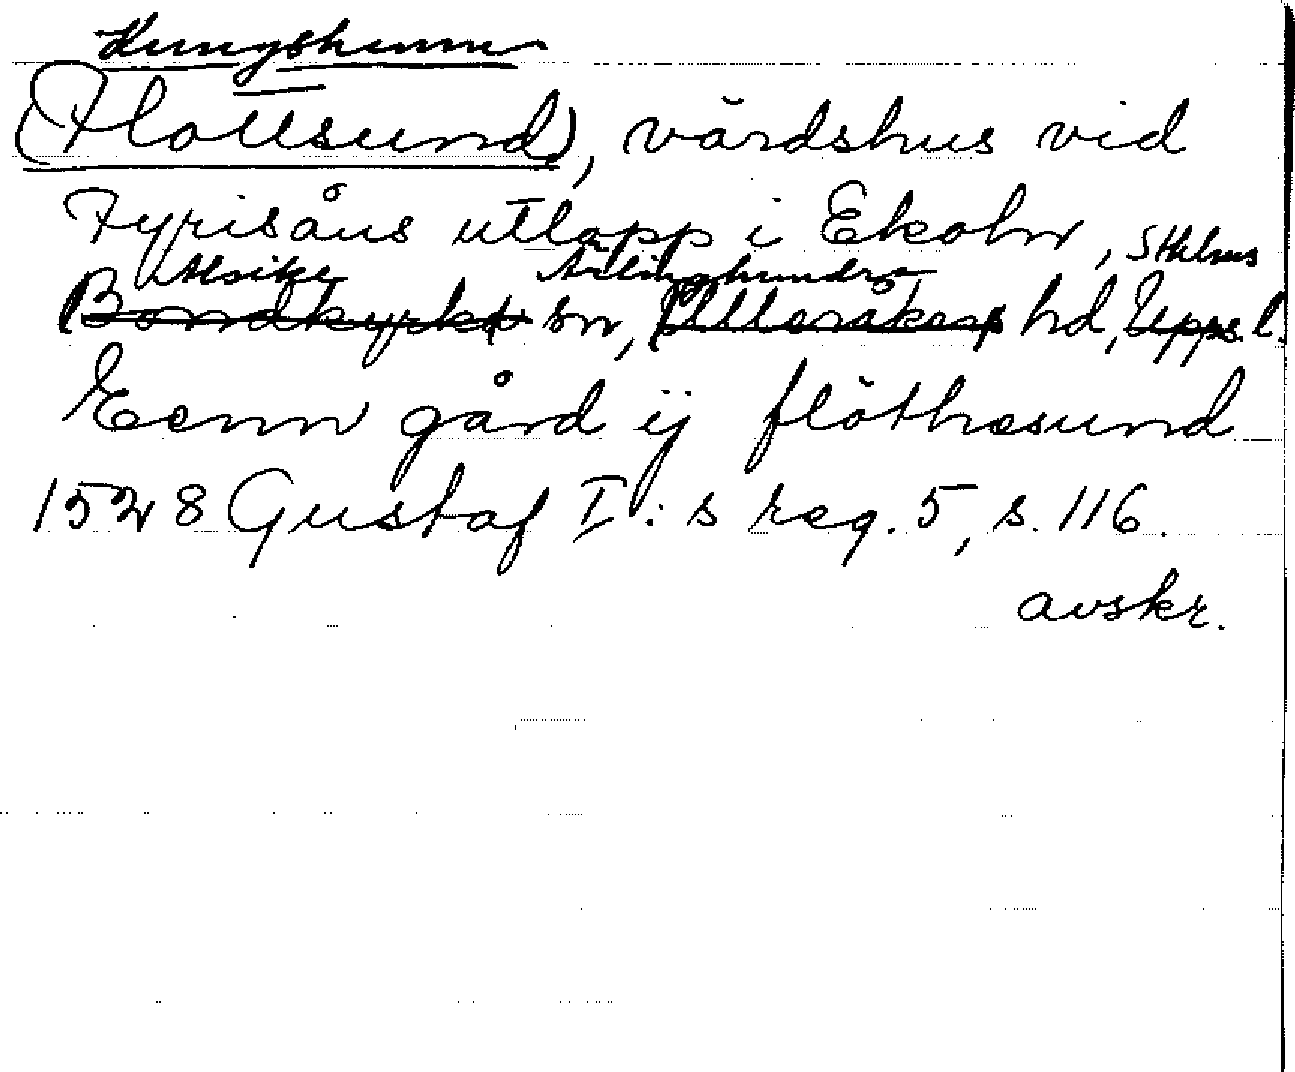 Kungshamn
(Flottsund), värdshus vid
Fyrisåns utlopp i Ekoln, Sthlms
Alsike Ärlinghundra
Bondkyrko sn, Ulleråkers hd, Upps. l.
Eenn gård ij flöthesund
1528 Gustaf I:s reg. 5, s. 116.
avskr.